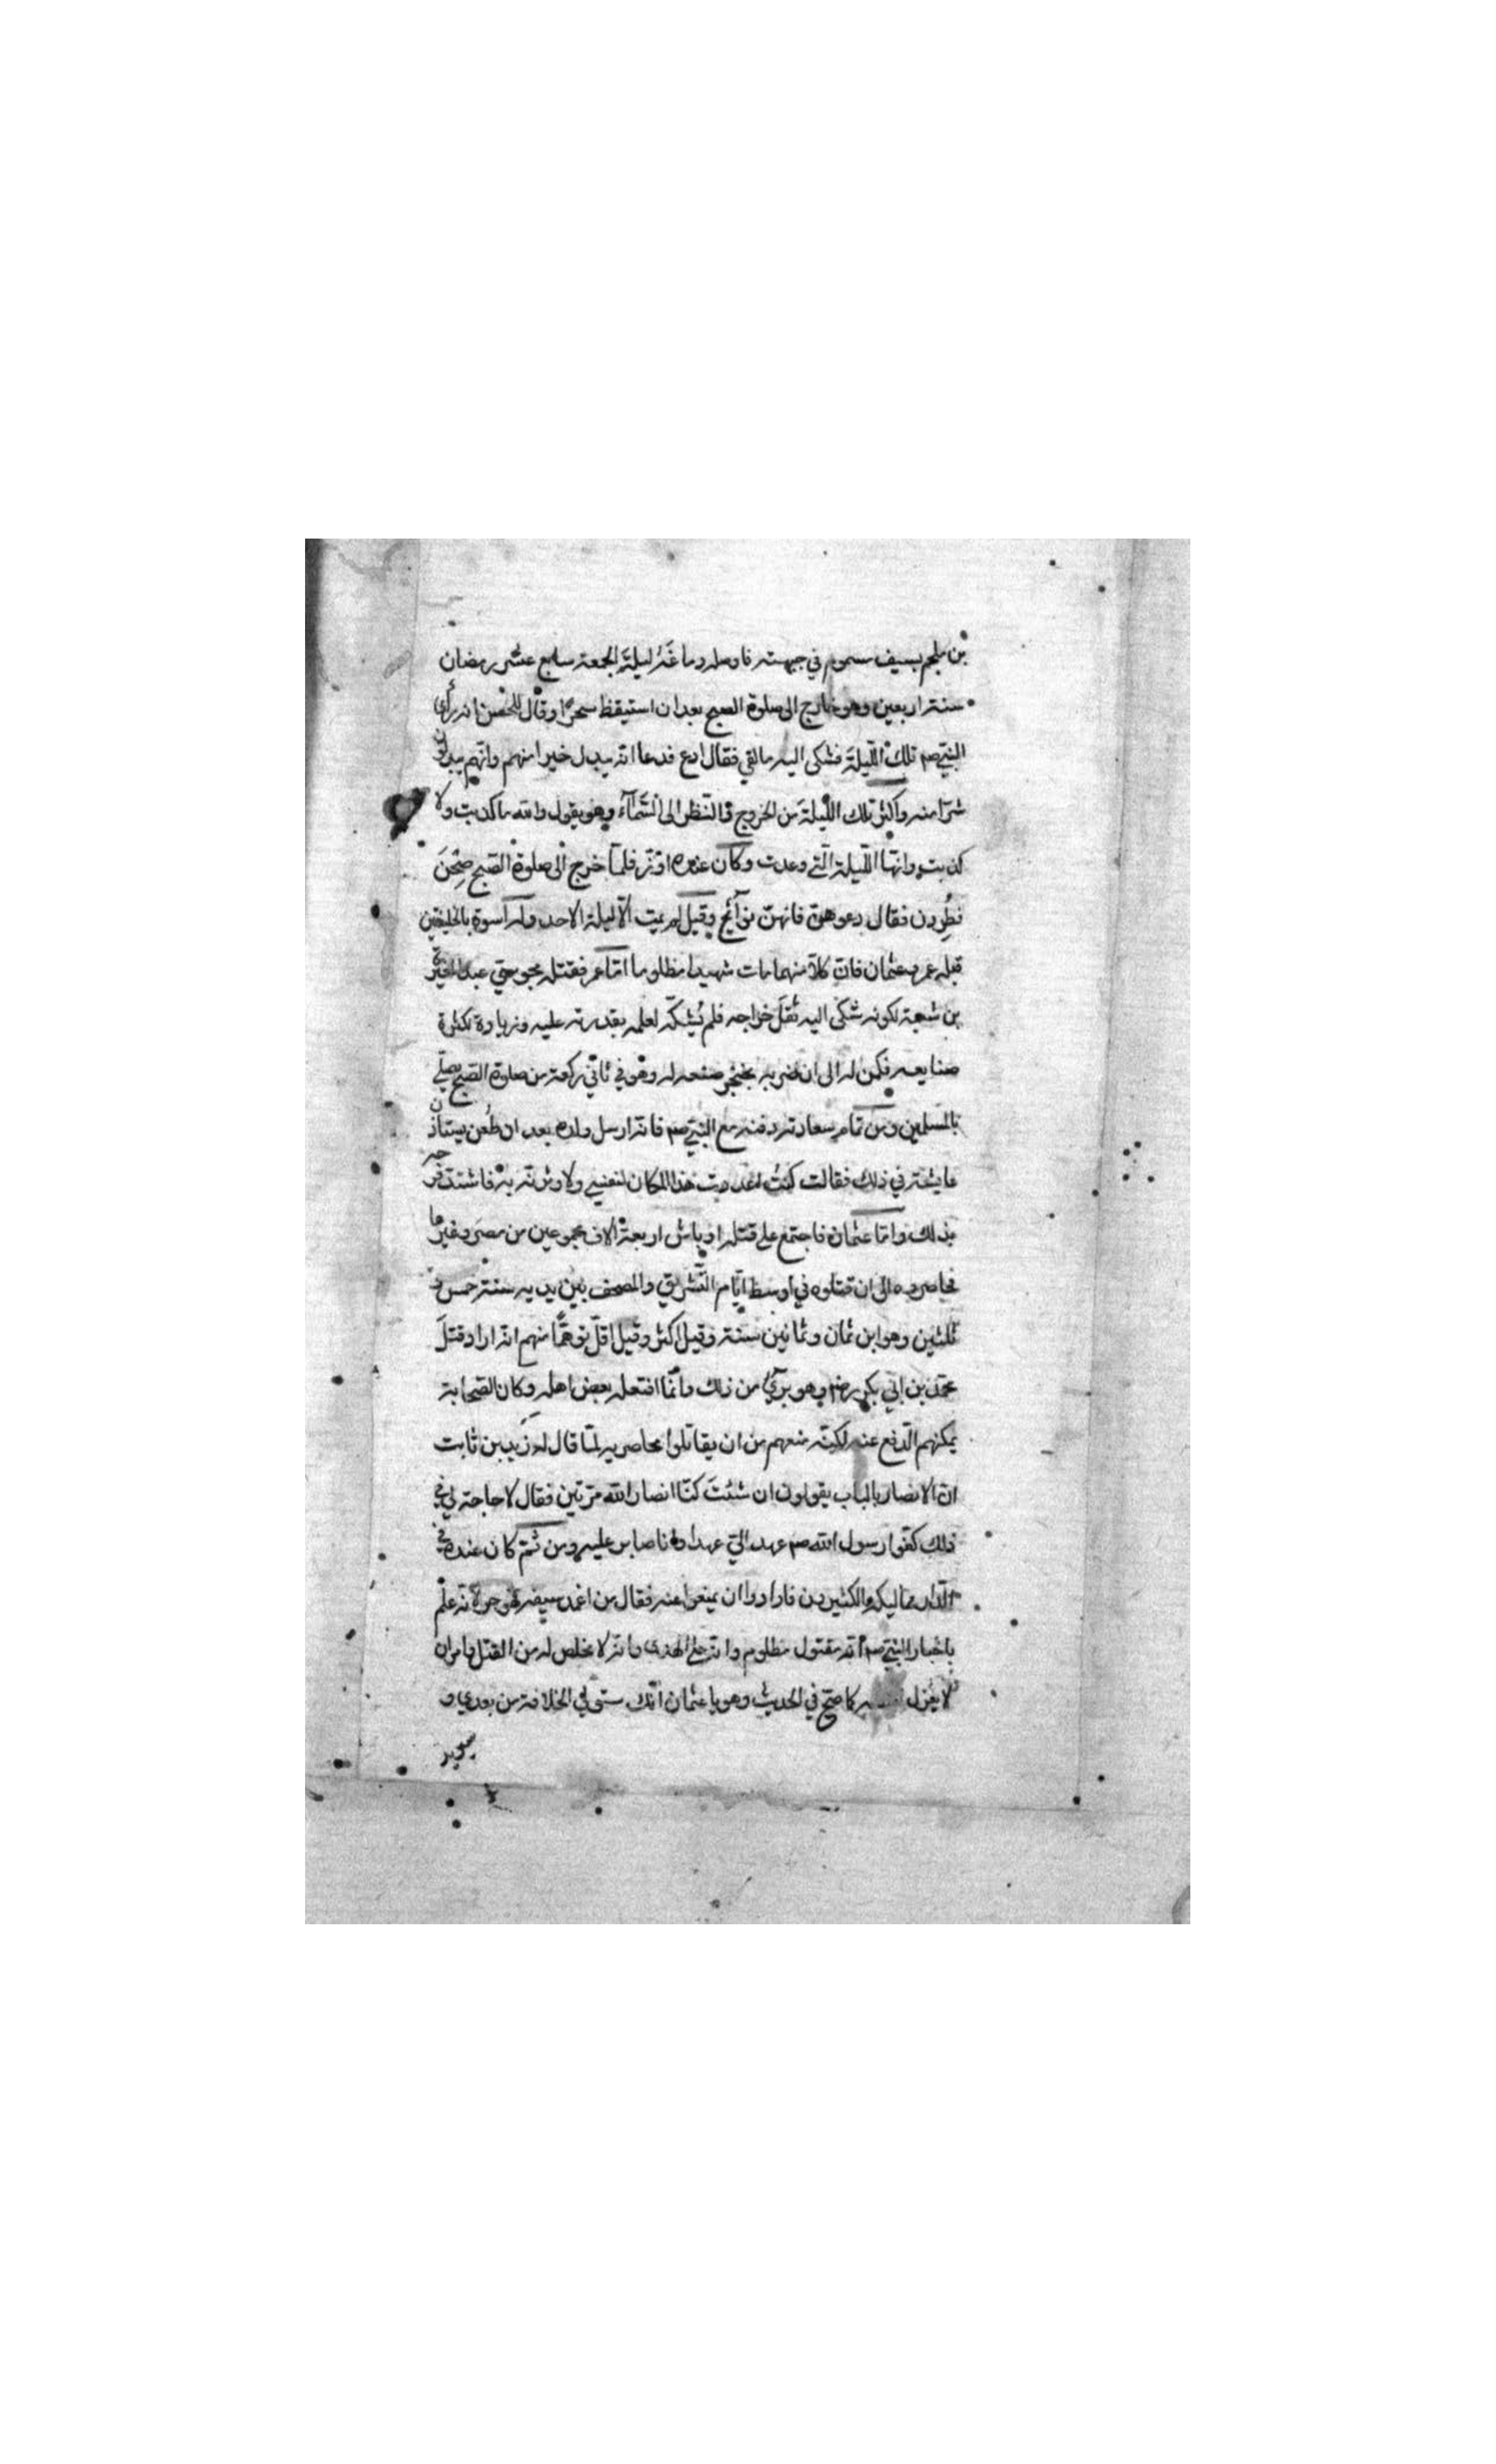 بن ملجم بسيف مسموم في جبهته فاوصله دماغَهُ ليلةَ الجمعة سابع عشر رمضان
سنة اربعين وهو خارج الى صلوة الصبح بعد ان استيقظ سحرًا وقال للحسن انه رأى
النبيّ صم تلك اللّيلةَ فشكى اليه ما لقي فقال ادع فدعا انّه يبدل خيرا منهم وانّهم يبدلون
شرّا منه واكثر تلك اللّيلةَ من الخروج والنّظر الى السّمآء وهو يقول والله ما كذبت ولا
كذبت وانّها اللّيلة الّتي وعدت وكان عنده اوزّ فلمّا خرج الى صلوة الصّبح صِحْنَ
فطُرِدن فقال دعوهنّ فانهنّ نوآئح وقيل لم يمت الّا ليلة الاحد وله اسوة بالخليفتين
قبله عمر وعثمان فانّ كلّا منهما مات شهيدا مظلوما امّا عمر فقتله مجوسيّ عبد المغيرة
بن شعبة لكونه شكى اليه ثقلَ خراجه فلم يُشكّه لعلمه بقدرته عليه وزيادة لكثرة
صنايعه فكمن له الى ان ضربه بخنجر صنعه له وهو في ثاني ركعة من صلوة الصّبح يصلّي
بالمسلمين ومن تمام سعادته دفنه مع النبيّ صم فانّه ارسل ولده بعد ان طُعن يستاذن
عايشة في ذلك فقالت كنتُ اعددت هذا المكان لنفسي ولاوثرنّه به فاشتدّ فرحه
بذلك وامّا عثمان فاجتمع على قتله اوباش اربعةُ الاف مجموعين من مصرَ وغيرها
فحاصروه الى ان قتلوه في اوسط ايّام التّشريق والمصحف بين يديه سنة خمس و
ثلثين وهو ابن ثمان وثمانين سنة وقيل اكثر وقيل اقلّ توهّمًا منهم انّه اراد قتلَ
محمّد بن ابي بكر رضه وهو برئ من ذلك وانّما افتعله بعض اهله وكان الصّحابة
يمكنهم الّدفع عنه لكنّه منعهم من ان يقاتلوا محاصريه لمّا قال له زيد بن ثابت
انّ الانصار بالباب يقولون ان شئتَ كنّا انصار الله مرّتين فقال لا حاجة لي في
ذلك كفّوا رسول الله صم عهد اليّ عهدا وانا صابر عليه ومن ثمّ كان عنده في
الدّار مماليكه الكثيرون فارادوا ان يمنعوا عنه فقال من اغمد سيفه فهو حرّ لانّه علم
باخبار النبيّ صم انّه مقتول مظلوم وانّه على الهدى وانّه لا مخلص له من القتل وامر ان
لا يعزل نفسه كما صحّ في الحديث وهو يا عثمان انّك ستولي الخلافة من بعدي و
سيريد